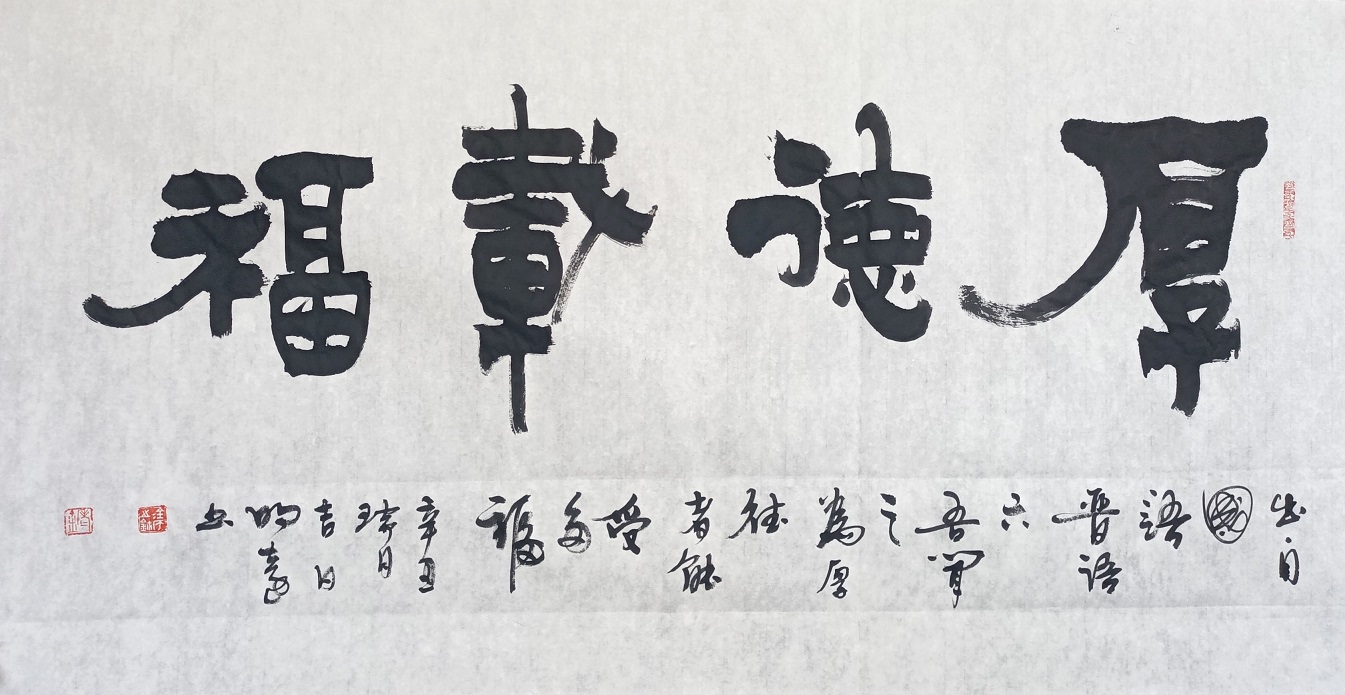 厚德載福
出自國語晋語六吾聞之為厚德者能受多福辛丑瑞月吉日明豪书